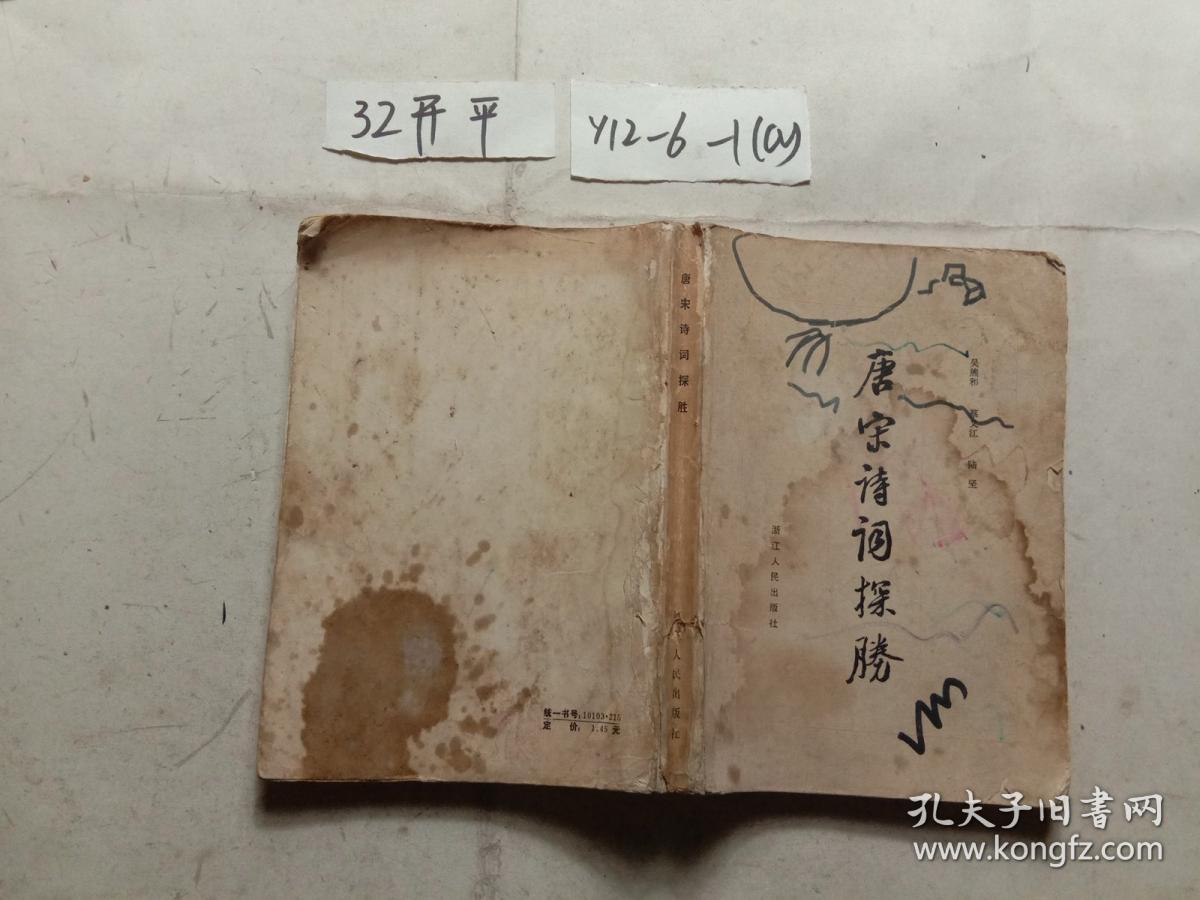 32开平
Y12-6-1(a)
唐宋诗词探胜
人民出版社
统一书号:10103·215
定价:1.45元
唐宋诗词探勝
吴熊和 蔡义江 陆坚
浙江人民出版社
孔夫子旧书网
www.kongfz.com